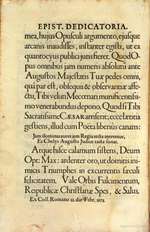 EPIST. DEDICATORIA.
mea, hujus Opusculi argumento, ejusque
arcanis inauditis, instanter egisti, ut ea
quantocyus publici juris fieret. Quod O-
pus omnibus jam numeris absolutũ ante
Augustos Majestatis Tuæ pedes omni,
qua par est, obsequii & observantiæ affe-
ctu, Tibi veluti Mecœnati munificentissi-
mo venerabundus depono. Quod si Tibi
Sacratissime CÆSAR arriserit; excelsentia
gestiens, illud cum Poëta libenter canam:
Et Chelys Augusto Judice tuta sonat.
Arque hisce calamum sistens, Deum
Opt: Max: ardenter oro, ut domitis ini-
micis Triumphes in excurrentis sæculi
felicitatem. Vale Orbis Fulcimentum,
Reipublicæ Christianæ Spes, & Salus.
Ex Coll. Romano